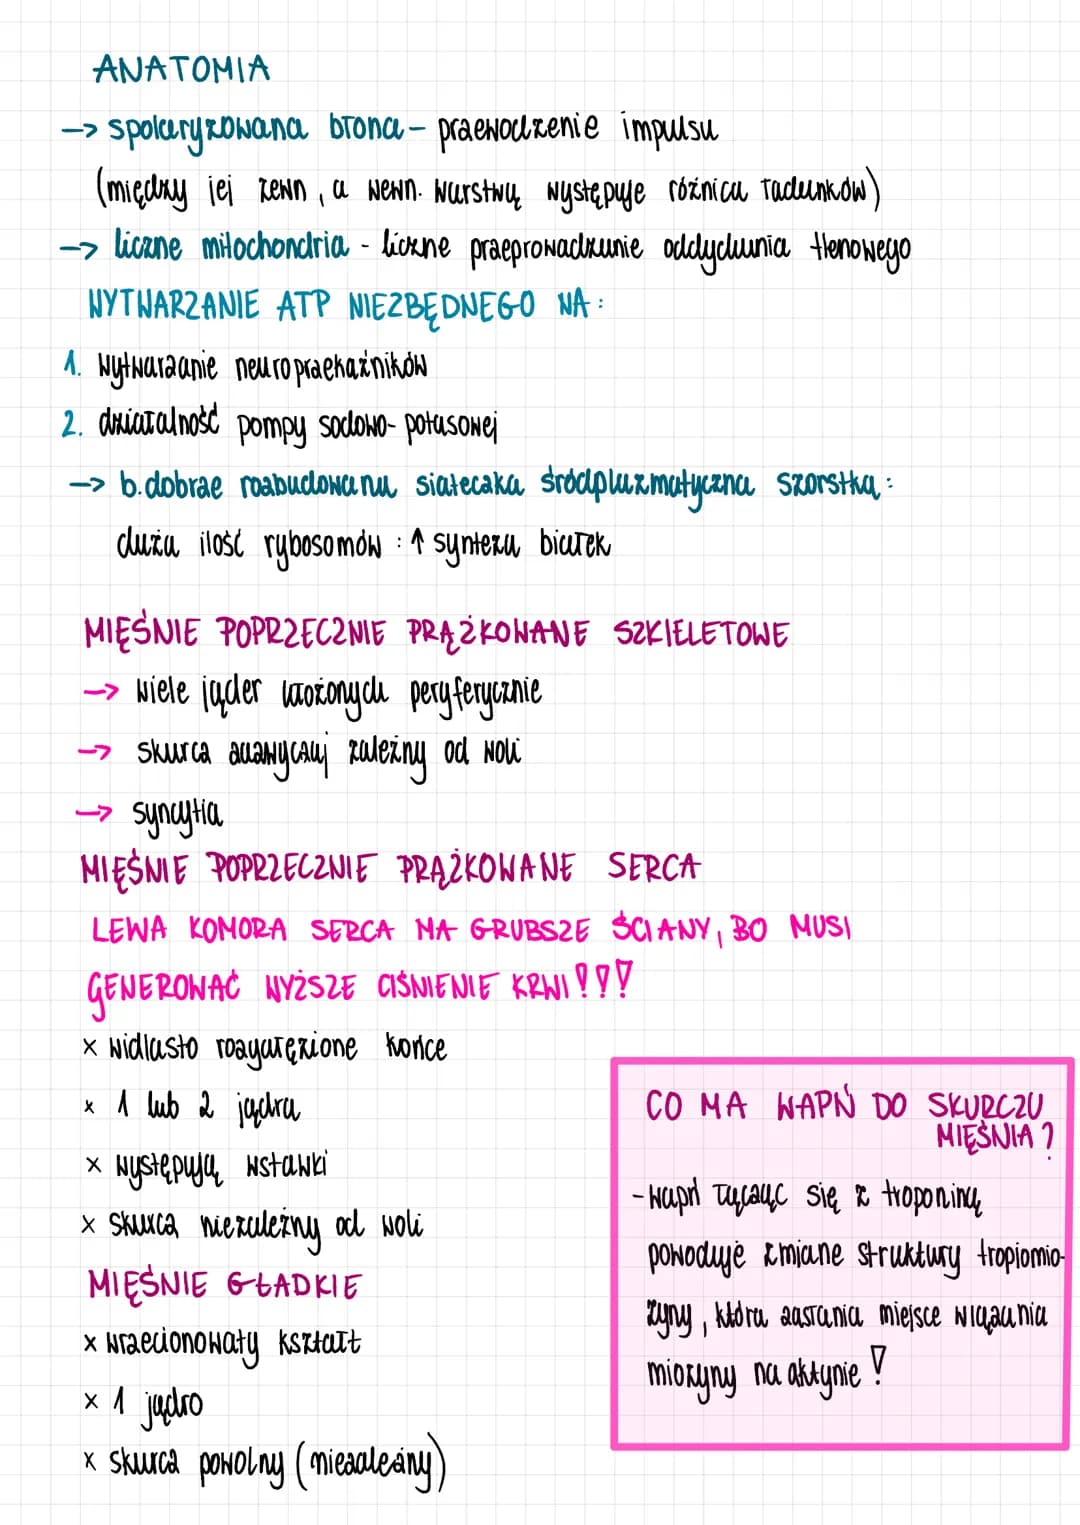 ANATOMIA
-> spolaryzowana błona - przewodzenie impulsu
(między jej zewn, a wewn. warstwą występuje różnica ładunków)
-> liczne mitochondria - liczne przeprowadzanie oddychania tlenowego
WYTWARZANIE ATP NIEZBĘDNEGO NA:
1. wytwarzanie neuroprzekaźników
2. działalność pompy sodowo-potasowej
-> b.dobrze rozbudowana siateczka śródplazmatyczna szorstka:
duża ilość rybosomów : ↑ synteza białek
MIĘŚNIE POPRZECZNIE PRĄŻKOWANE SZKIELETOWE
-> wiele jąder ułożonych peryferycznie
-> skurcz zależny od woli
-> syncytia
MIĘŚNIE POPRZECZNIE PRĄŻKOWANE SERCA
LEWA KOMORA SERCA MA GRUBSZE ŚCIANY, BO MUSI
GENEROWAĆ WYŻSZE CIŚNIENIE KRWI!!!
x widlasto rozgałęzione końce
x 1 lub 2 jądra
x występują wstawki
x skurcz niezależny od woli
MIĘŚNIE GŁADKIE
x wrzecionowaty kształt
x 1 jądro
x skurcz powolny (niezależny)
CO MA WAPŃ DO SKURCZU
MIĘŚNIA?
- wapń łącząc się z troponiną
powoduje zmiane struktury tropiomio-
zyny, która zasłania miejsce wiązania
miozyny na aktynie!